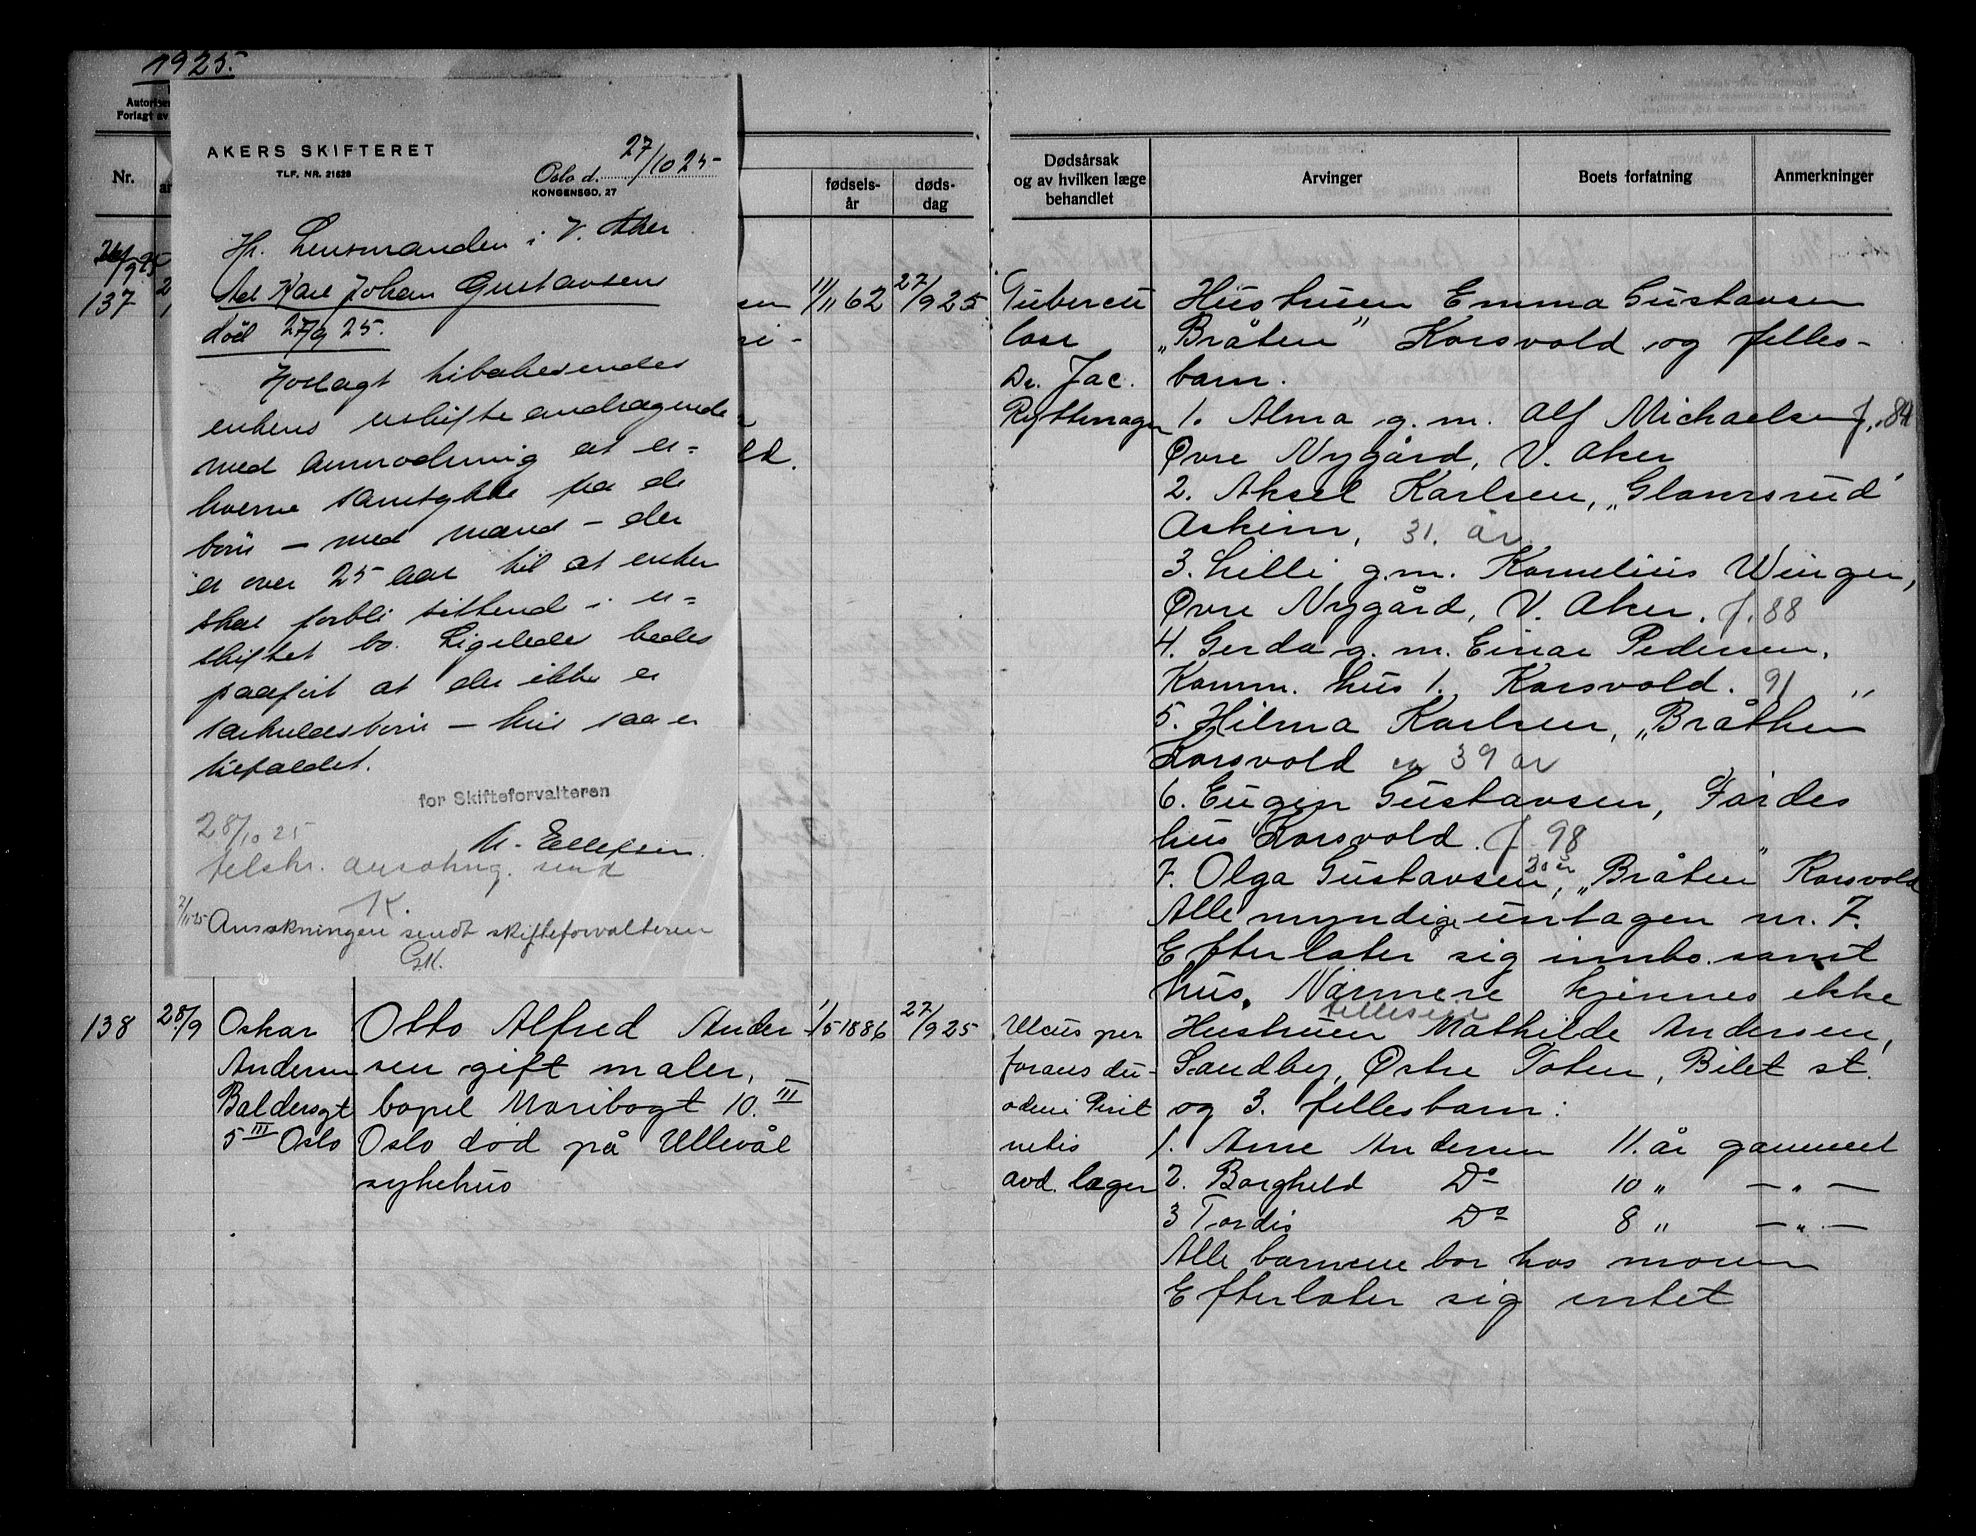 1925.
Nr.
26/9 25
137
AKERS SKIFTERET
TLF. NR. 21629
Oslo d. 27/10 25
KONGENSGD. 27
Hr. Lensmanden i V. Aker
Ad Karl Johan Gustavsen
død 27/9 25.
Forlagt tilbakesendes
enkens uskifteandragende
med anmodning at er-
hverve samtykke fra de
børn – med mænd – der
er over 25 aar til at enken
skal forbli sittende i u-
skiftet bo. Ligeledes bedes
paaført at der ikke er
særkuldsbørn – hvis saa er
tilfældet.
for Skifteforvalteren
M. Ellefsen
28/10 25
telefr. ansøkng. send
K.
2/11 25 Ansøkningen sendt skifteforvalteren
GK.
fødsels-
år
døds-
dag
11/11 62
27/9 25
Dødsårsak
og av hvilken læge
behandlet
Arvinger
Boets forfatning
Anmerkninger
Tubercu
lose
Dr. Jac.
Ryttenager
Hustruen Emma Gustavsen
„Bråten" Korsvold og felles-
barn.
1. Alma g. m. Alf Michaelsen f. 84
Øvre Nygård, V. Aker
2. Aksel Karlsen, „Glamsrud"
Askim, 31. år
3. Lilli g.m. Kornelius Winger,
Øvre Nygård, V. Aker. f. 88
4. Gerda g. m. Einar Pedersen,
Komm. hus 1. Korsvold. 91 "
5. Hilma Karlsen, „Bråthen
Korsvold ca 39 år
6. Eugen Gustavsen, Fårdes
hus Korsvold. f. 98
7. Olga Gustavsen, 20 år „Bråten" Korsvold
Alle myndige untagen nr. 7.
Efterlater sig innbo samt
hus. Nærmere kjennes ikke
138
28/9
Oskar
Andersen
Baldersgt
5 III Oslo
Otto Alfred Ander
sen gift maler,
bopel Maribogt 10. III
Oslo død på Ullevål
sykehus
1/5 1886
27/9 25
Ulcus per
forans du-
odeni Perit
netis
avd. læger
Hustruen Mathilde Andersen,
Sandby, Østre Toten, Bilet st.
og 3. fellesbarn:
1. Arne Andersen 11. år gammel
2. Borghild Do 10 " — " —
3 Tordis Do 8 " — " —
Alle barnene bor hos moren
Efterlater sig intet